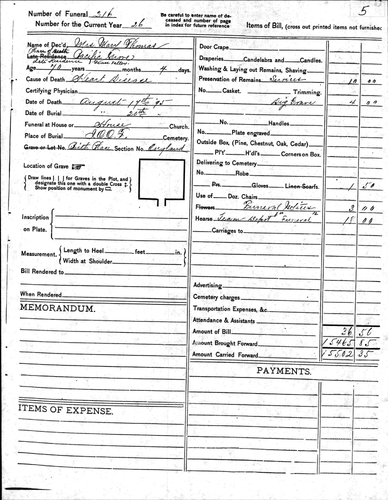 5
Number of Funeral 216
Number for the Current Year 26
Be careful to enter name of deceased and number of page in index for future reference
Name of Dec'd, Mrs Mary Thomas
Place of Death
Late Residence Pacific Grove
Late Residence
Age 70 years months 4 days.
Cause of Death Heart Disease
Certifying Physician
Date of Death August 17th 95
Date of Burial 20th
Funeral at House or House Church.
Place of Burial I.O.O.F. Cemetery.
Grave or Lot No. Birth Place Section No. England
Location of Grave
Draw lines for Graves in the Plot, and designate this one with a double Cross. Show position of monument by
Inscription on Plate.
Measurement. Length to Heel feet in.
Width at Shoulder
Bill Rendered to
When Rendered
MEMORANDUM.
ITEMS OF EXPENSE.
Items of Bill, (cross out printed items not furnished)
Door Crape
Draperies. Candelabra and Candles.
Washing & Laying out Remains, Shaving
Preservation of Remains Services 10 00
No. Casket. Trimming.
Dig Grave 4 00
No. Handles
Plate engraved
Outside Box, (Pine, Chestnut, Oak, Cedar)
P'l'y H'd'l's Corners on Box.
Delivering to Cemetery
No. Robe
Prs. Gloves Linen Scarfs. 1 50
Use of Doz. Chairs
Flowers Funeral Notices 3 00
Hearse Team Depot & Funeral 18 00
Carriages to
Advertising
Cemetery charges
Transportation Expenses, &c
Attendance & Assistants
Amount of Bill 36 50
Amount Brought Forward 15465 85
Amount Carried Forward 15502 35
PAYMENTS.